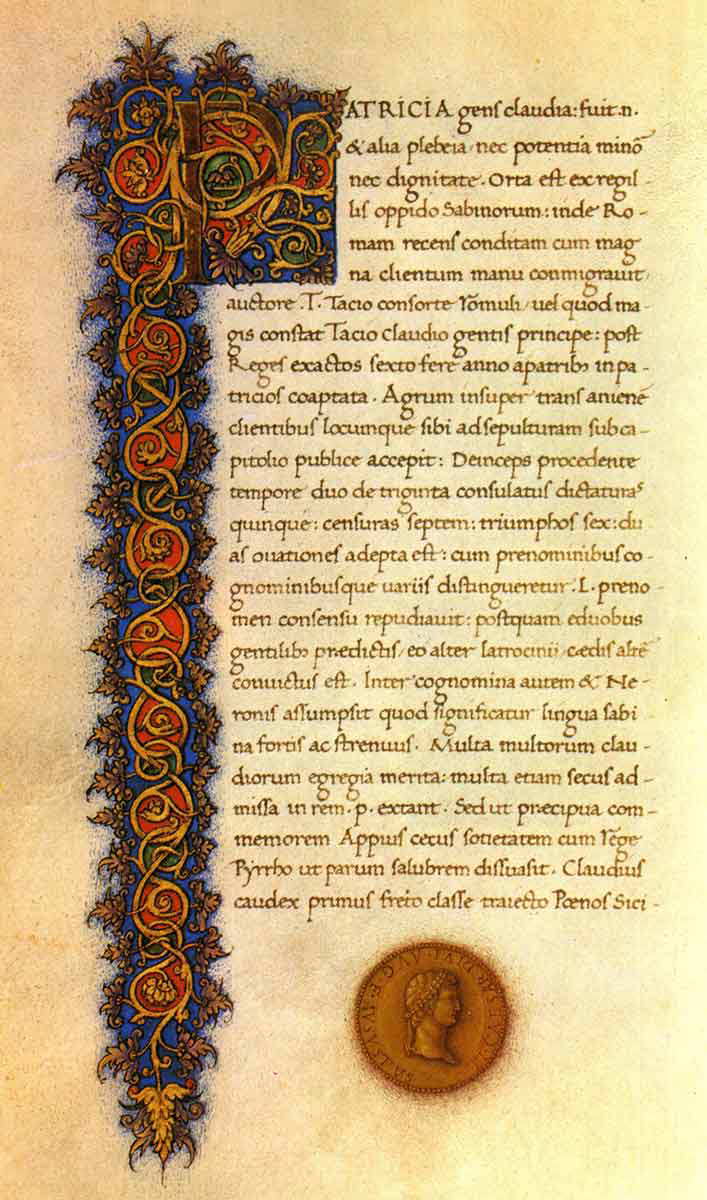 PATRICIA gens claudia: fuit .n.
& alia plebeia nec potentia minō
nec dignitate. Orta est ex regil-
lis oppido Sabinorum: inde Ro-
mam recens conditam cum mag
na clientum manu conmigravit
auctore .T. Tacio consorte romuli vel quod ma-
gis constat Tacio claudio gentis principe: post
Reges exactos sexto fere anno a patribꝫ in pa-
tricios coaptata. Agrum insuper trans anienē
clientibus locumque sibi ad sepulturam sub ca-
pitolio publice accepit: Deinceps procedente
tempore duo de triginta consulatus dictaturas
quinque: censuras septem: triumphos sex: du
as ovationes adepta est: cum prenominibus co-
gnominibusque variis distingueretur. L. preno
men consensu repudiavit: postquam e duobus
gentilibꝫ prædictis, eo alter latrocinii cædis altē
convictus est. Inter cognomina autem & Ne-
ronis assumpsit quod significatur lingua sabi
na fortis ac strenuus. Multa multorum clau-
diorum egregia merita: multa etiam secus ad-
missa in rem .p. extant. Sed ut præcipua com-
memorem Appius cecus societatem cum rege
Pyrrho ut parum salubrem dissuasit. Claudius
caudex primus freto classe traiecto Pœnos Sici-
CAESAR DIVI AVG F